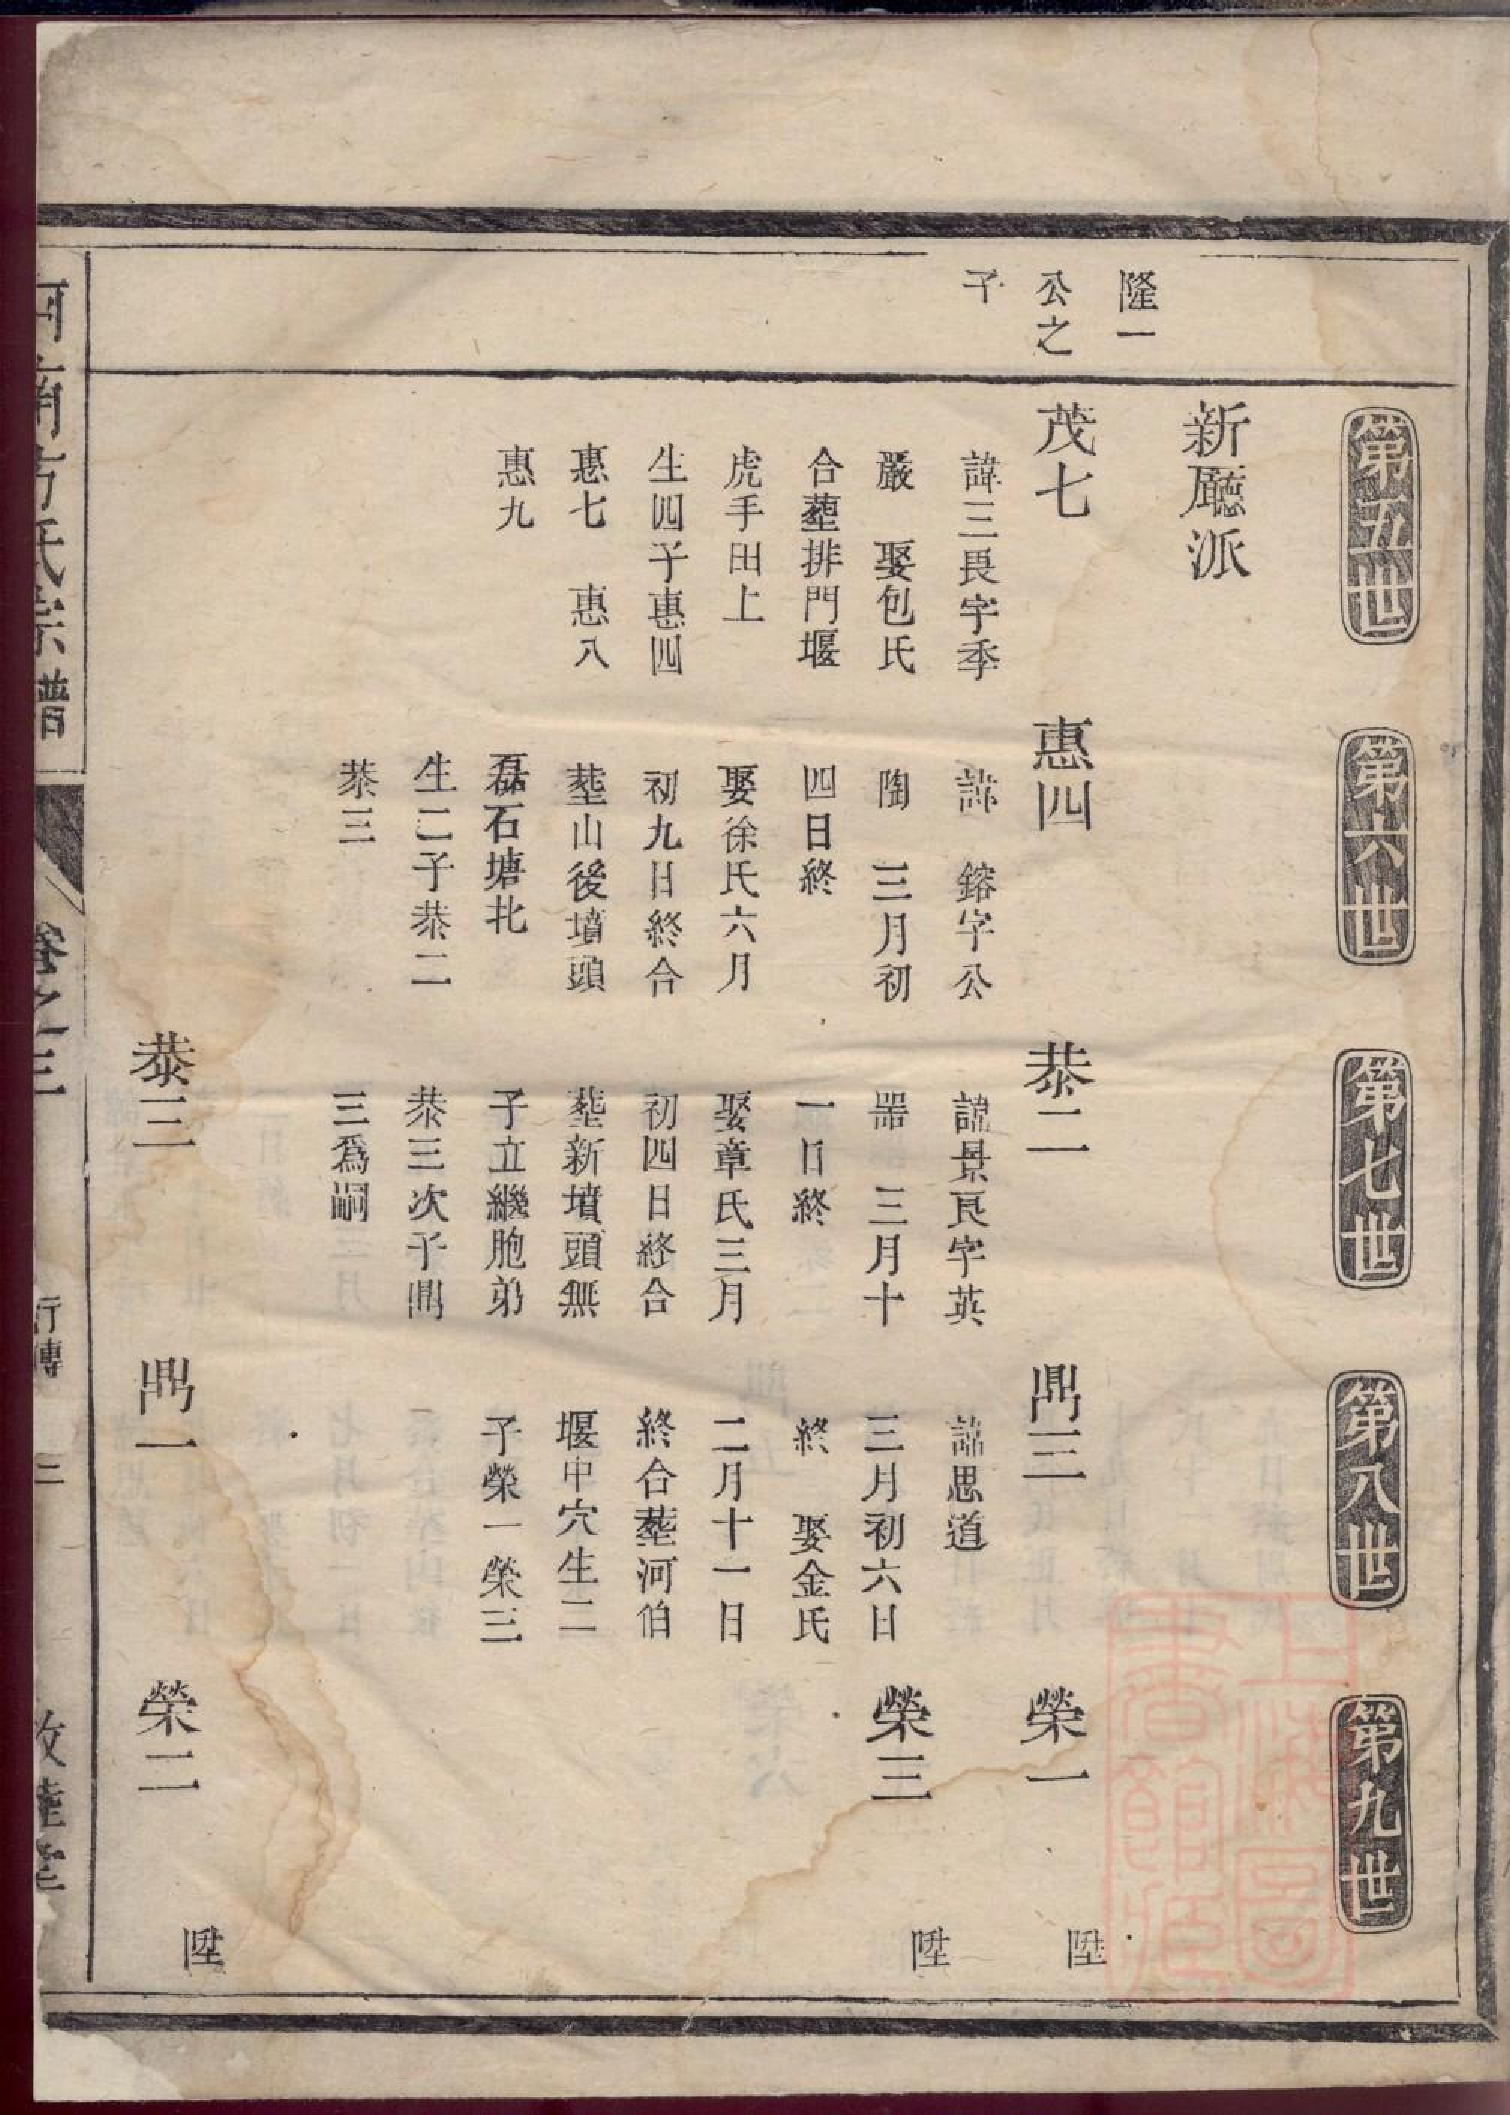 第五世
第六世
第七世
第八世
第九世
新廳派
隆一
公之
子
茂七
諱三畏字季
嚴　娶包氏
合塟排門堰
虎手田上
生四子惠四
惠七　惠八
惠九
惠四
諱　鎔字公
陶　三月初
四日終
娶徐氏六月
初九日終合
塟山後墳頭
磊石塘北
生二子恭二
恭三
恭二
諱景良字英
噐　三月十
一日終
娶章氏三月
初四日終合
塟新墳頭無
子立繼胞弟
恭三次子鼎
三爲嗣
鼎三
諱思道
三月初六日
終　娶金氏
二月十一日
終合塟河伯
堰中穴生二
子榮一榮三
榮一
陞
榮三
陞
恭三
鼎一
榮二
陞
河南方氏宗譜
卷之三
行傳
二
敦睦堂
上海圖
書館藏